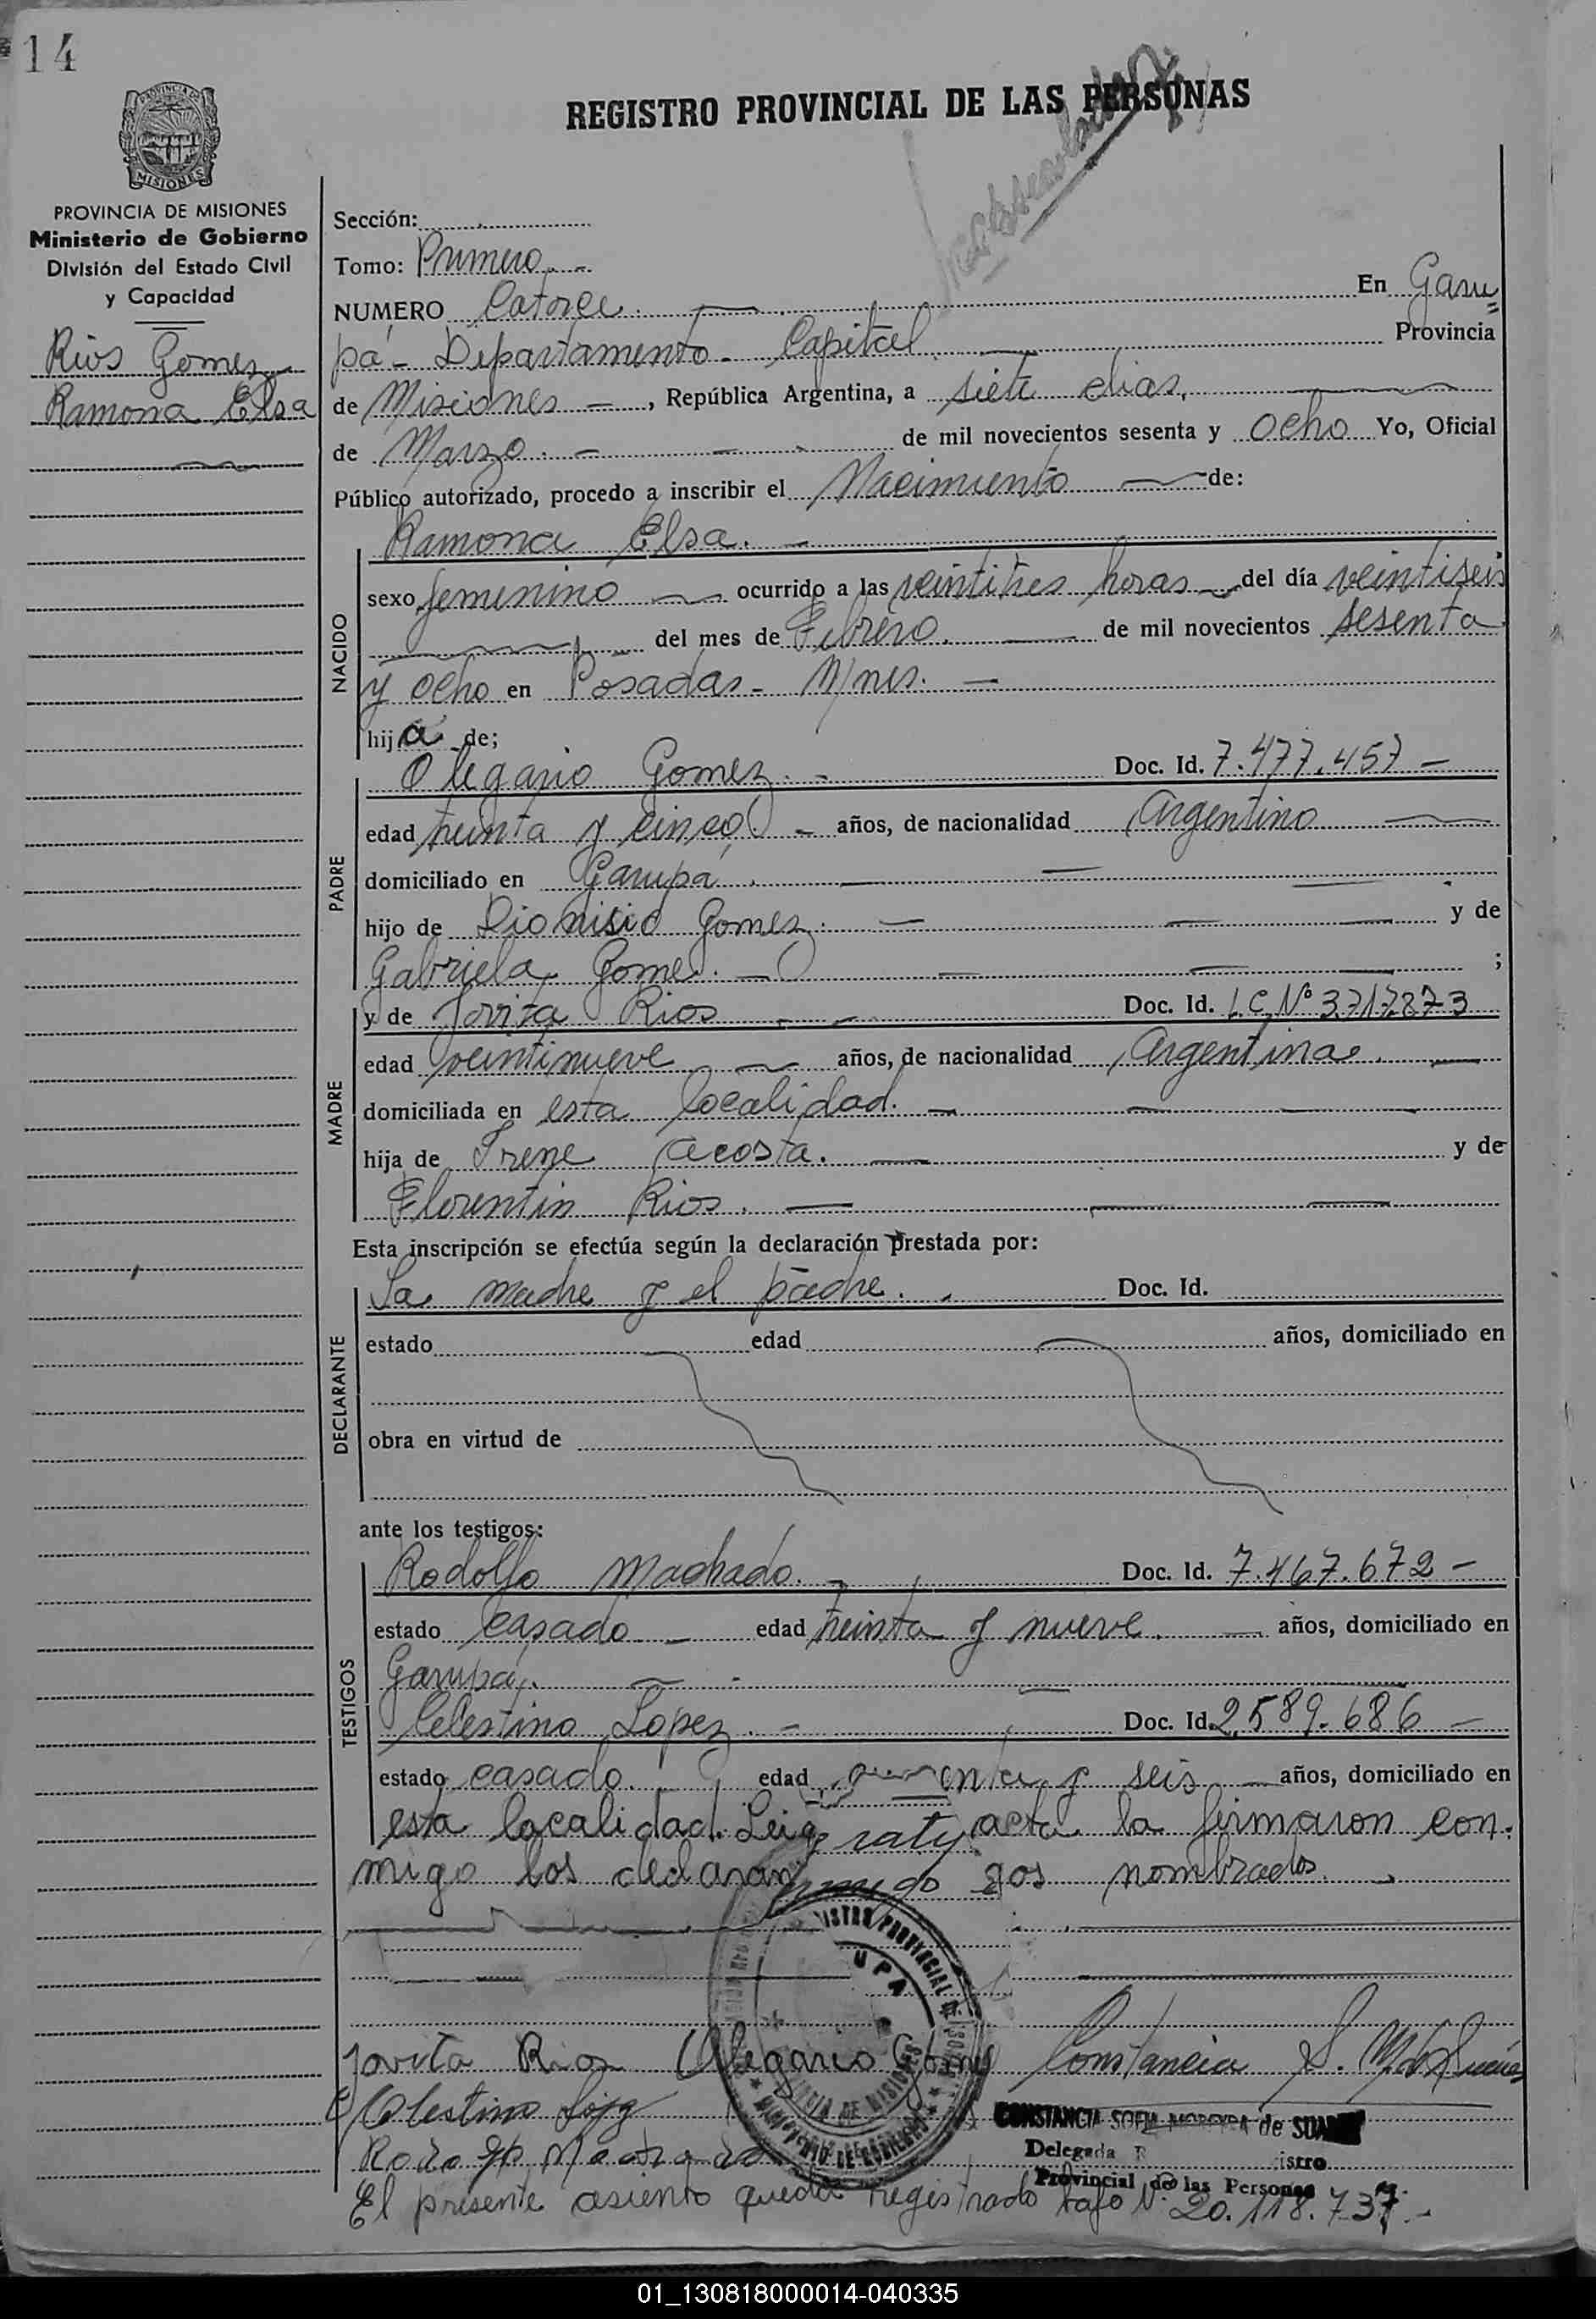 14
REGISTRO PROVINCIAL DE LAS PERSONAS
PROVINCIA DE
MISIONES
PROVINCIA DE MISIONES
Ministerio de Gobierno
División del Estado Civil
y Capacidad
Rios Gomez
Ramona Elsa
Sección:
Tomo: Primero. -
NUMERO Catorce. — En Garu=
pá - Departamento - Capital. — Provincia
de Misiones -, República Argentina, a siete dias,
de Marzo. - de mil novecientos sesenta y ocho Yo, Oficial
Público autorizado, procedo a inscribir el Nacimiento — de:
Ramona Elsa. -
NACIDO
sexo femenino — ocurrido a las veintitres horas — del día veintiseis
del mes de Febrero. — de mil novecientos sesenta
y ocho en Posadas - M/nes. —
hija de;
PADRE
Olegario Gomez. - Doc. Id. 7.477.457 -
edad treinta y cinco - años, de nacionalidad Argentino
domiciliado en Garupá. —
hijo de Dionisio Gomez. — y de
Gabriela Gomez. — ;
MADRE
y de Jovita Rios - Doc. Id. L.C. Nº 3.717.873
edad veintinueve — años, de nacionalidad Argentina. —
domiciliada en esta localidad. —
hija de Irene Acosta. — y de
Florentin Rios. —
Esta inscripción se efectúa según la declaración prestada por:
DECLARANTE
La madre y el padre. Doc. Id.
estado edad años, domiciliado en
obra en virtud de
ante los testigos:
TESTIGOS
Rodolfo Machado. - Doc. Id. 7.467.672 -
estado casado - edad treinta y nueve. — años, domiciliado en
Garupá. —
Celestino Lopez. - Doc. Id. 2.589.686 -
estado casado. edad y seis — años, domiciliado en
esta localidad. acta la firmaron con-
migo los nombrados.
Jovita Rios Olegario Gomez Constancia S.
Celestino
CONSTANCIA SOFIA MOREYRA de
Delegada
Provincial de las Personas
El presente asiento queda registrado bajo Nº 20.118.737.-
01_130818000014-040335